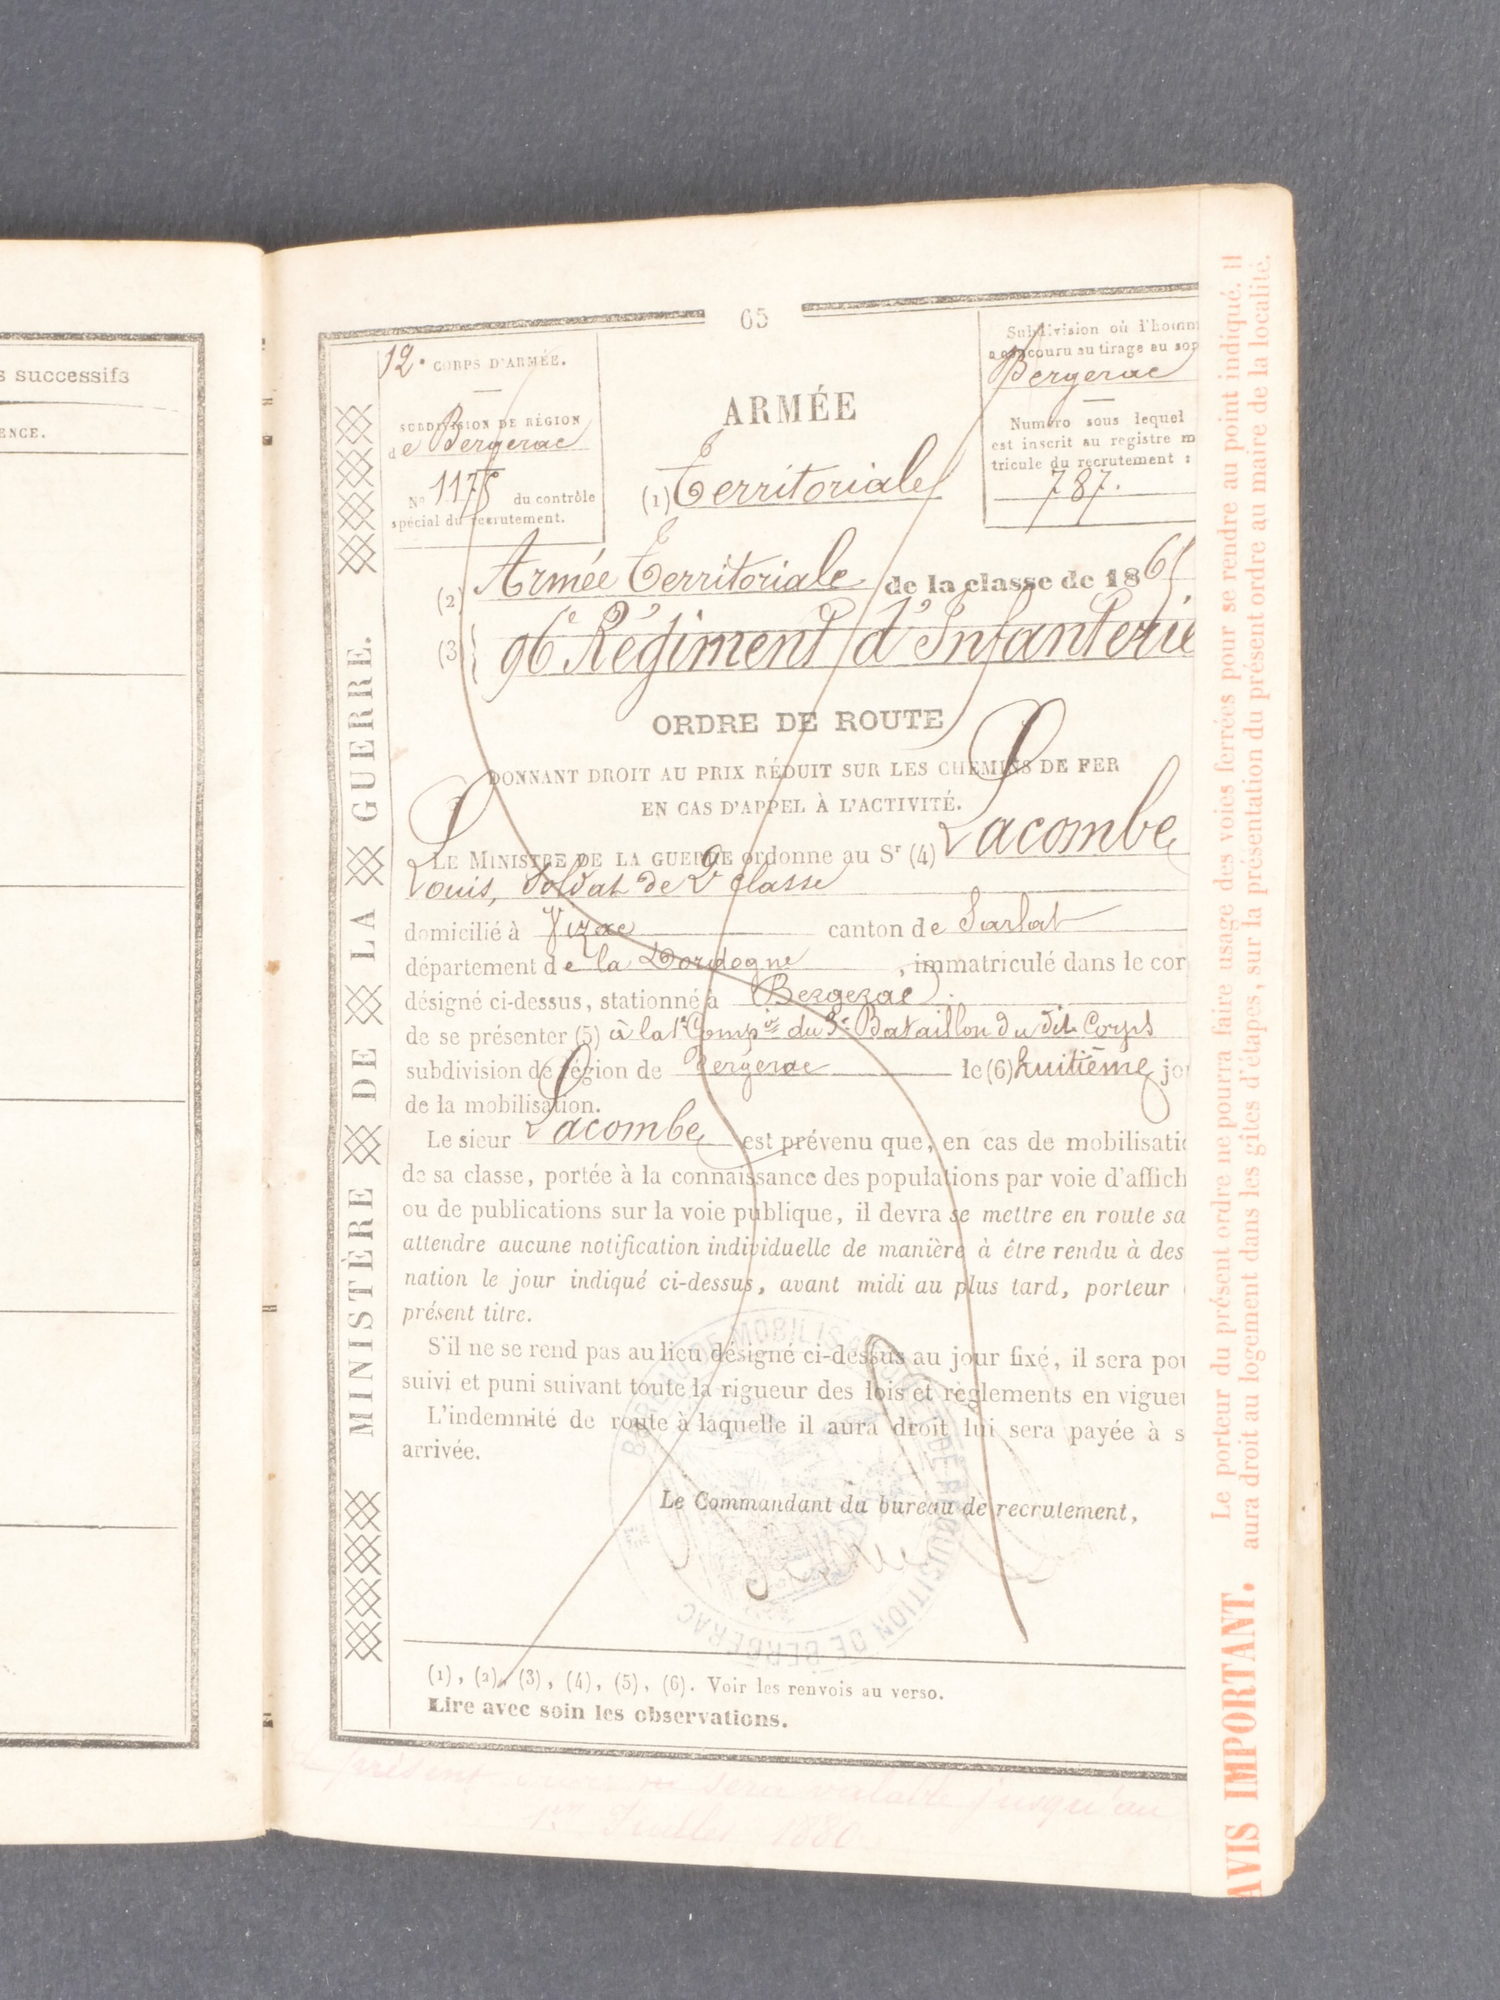 s successifs
ENCE.
65
12e CORPS D'ARMÉE.
SUBDIVISION DE RÉGION
de Bergerac
N° 1175 du contrôle
spécial du recrutement.
ARMÉE
(1) Territoriale
Subdivision où l'homm
a concouru au tirage au sor
Bergerac
Numéro sous lequel
est inscrit au registre m
tricule du recrutement :
787.
(2) Armée Territoriale de la classe de 1865
(3) 96e Régiment d'Infanterie
ORDRE DE ROUTE
DONNANT DROIT AU PRIX RÉDUIT SUR LES CHEMINS DE FER
EN CAS D'APPEL À L'ACTIVITÉ.
LE MINISTRE DE LA GUERRE ordonne au Sr (4) Lacombe
Louis, Soldat de 2e classe
domicilié à canton de Sarlat
département de la Dordogne, immatriculé dans le cor
désigné ci-dessus, stationné à Bergerac.
de se présenter (5) à la 1e Compie du 3e Bataillon du dit Corps
subdivision de région de Bergerac le (6) huitième jo
de la mobilisation.
Le sieur Lacombe est prévenu que, en cas de mobilisatio
de sa classe, portée à la connaissance des populations par voie d'affich
ou de publications sur la voie publique, il devra se mettre en route sa
attendre aucune notification individuelle de manière à être rendu à des
nation le jour indiqué ci-dessus, avant midi au plus tard, porteur
présent titre.
S'il ne se rend pas au lieu désigné ci-dessus au jour fixé, il sera pou
suivi et puni suivant toute la rigueur des lois et règlements en vigueu
L'indemnité de route à laquelle il aura droit lui sera payée à s
arrivée.
Le Commandant du bureau de recrutement,
(1), (2), (3), (4), (5), (6). Voir les renvois au verso.
Lire avec soin les observations.
présent sera valable jusqu'au
1er Juillet 1880
MINISTÈRE DE LA GUERRE.
AVIS IMPORTANT. Le porteur du présent ordre ne pourra faire usage des voies ferrées pour se rendre au point indiqué. Il
aura droit au logement dans les gîtes d'étapes, sur la présentation du présent ordre au maire de la localité.